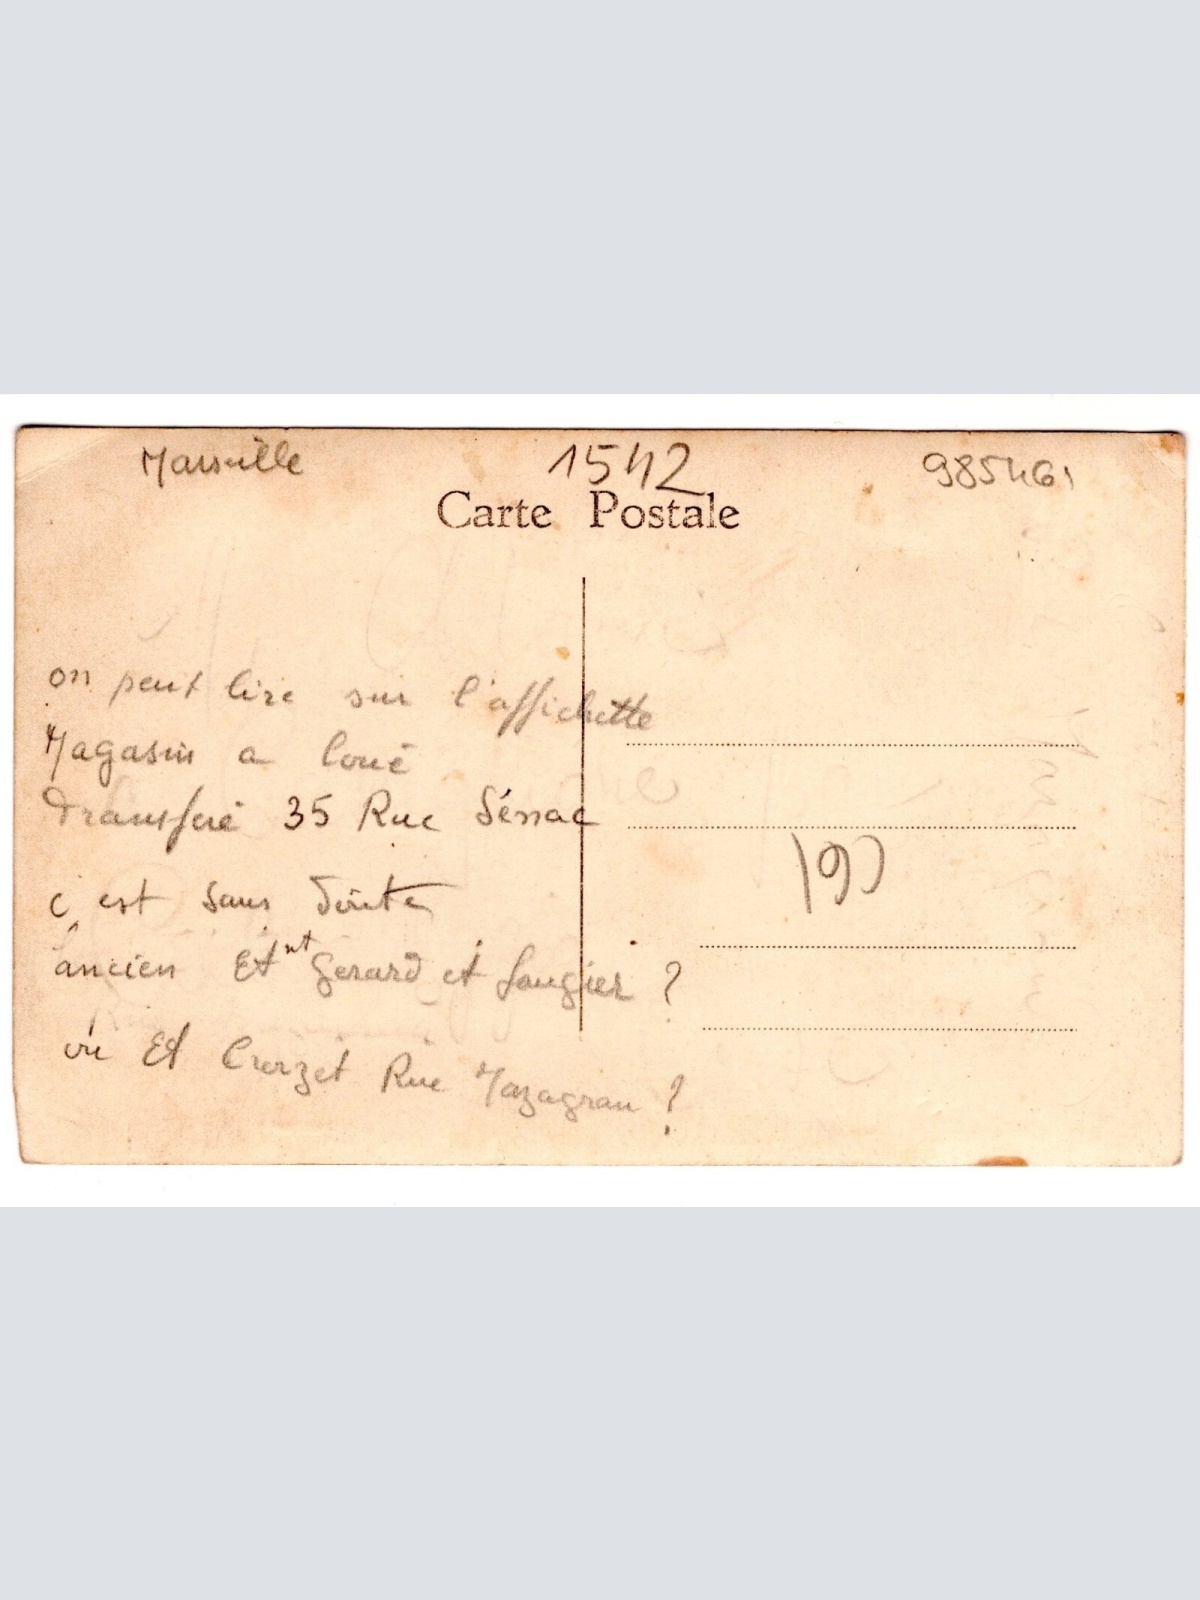 Marseille 1542 985461
Carte Postale
on peut lire sur l'affichette
Magasin a loué
Transferé 35 Rue Sénac
190
c est sans doute
ancien Etnt Gerard et Saugier ?
ou Et Crozet Rue Mazagran ?